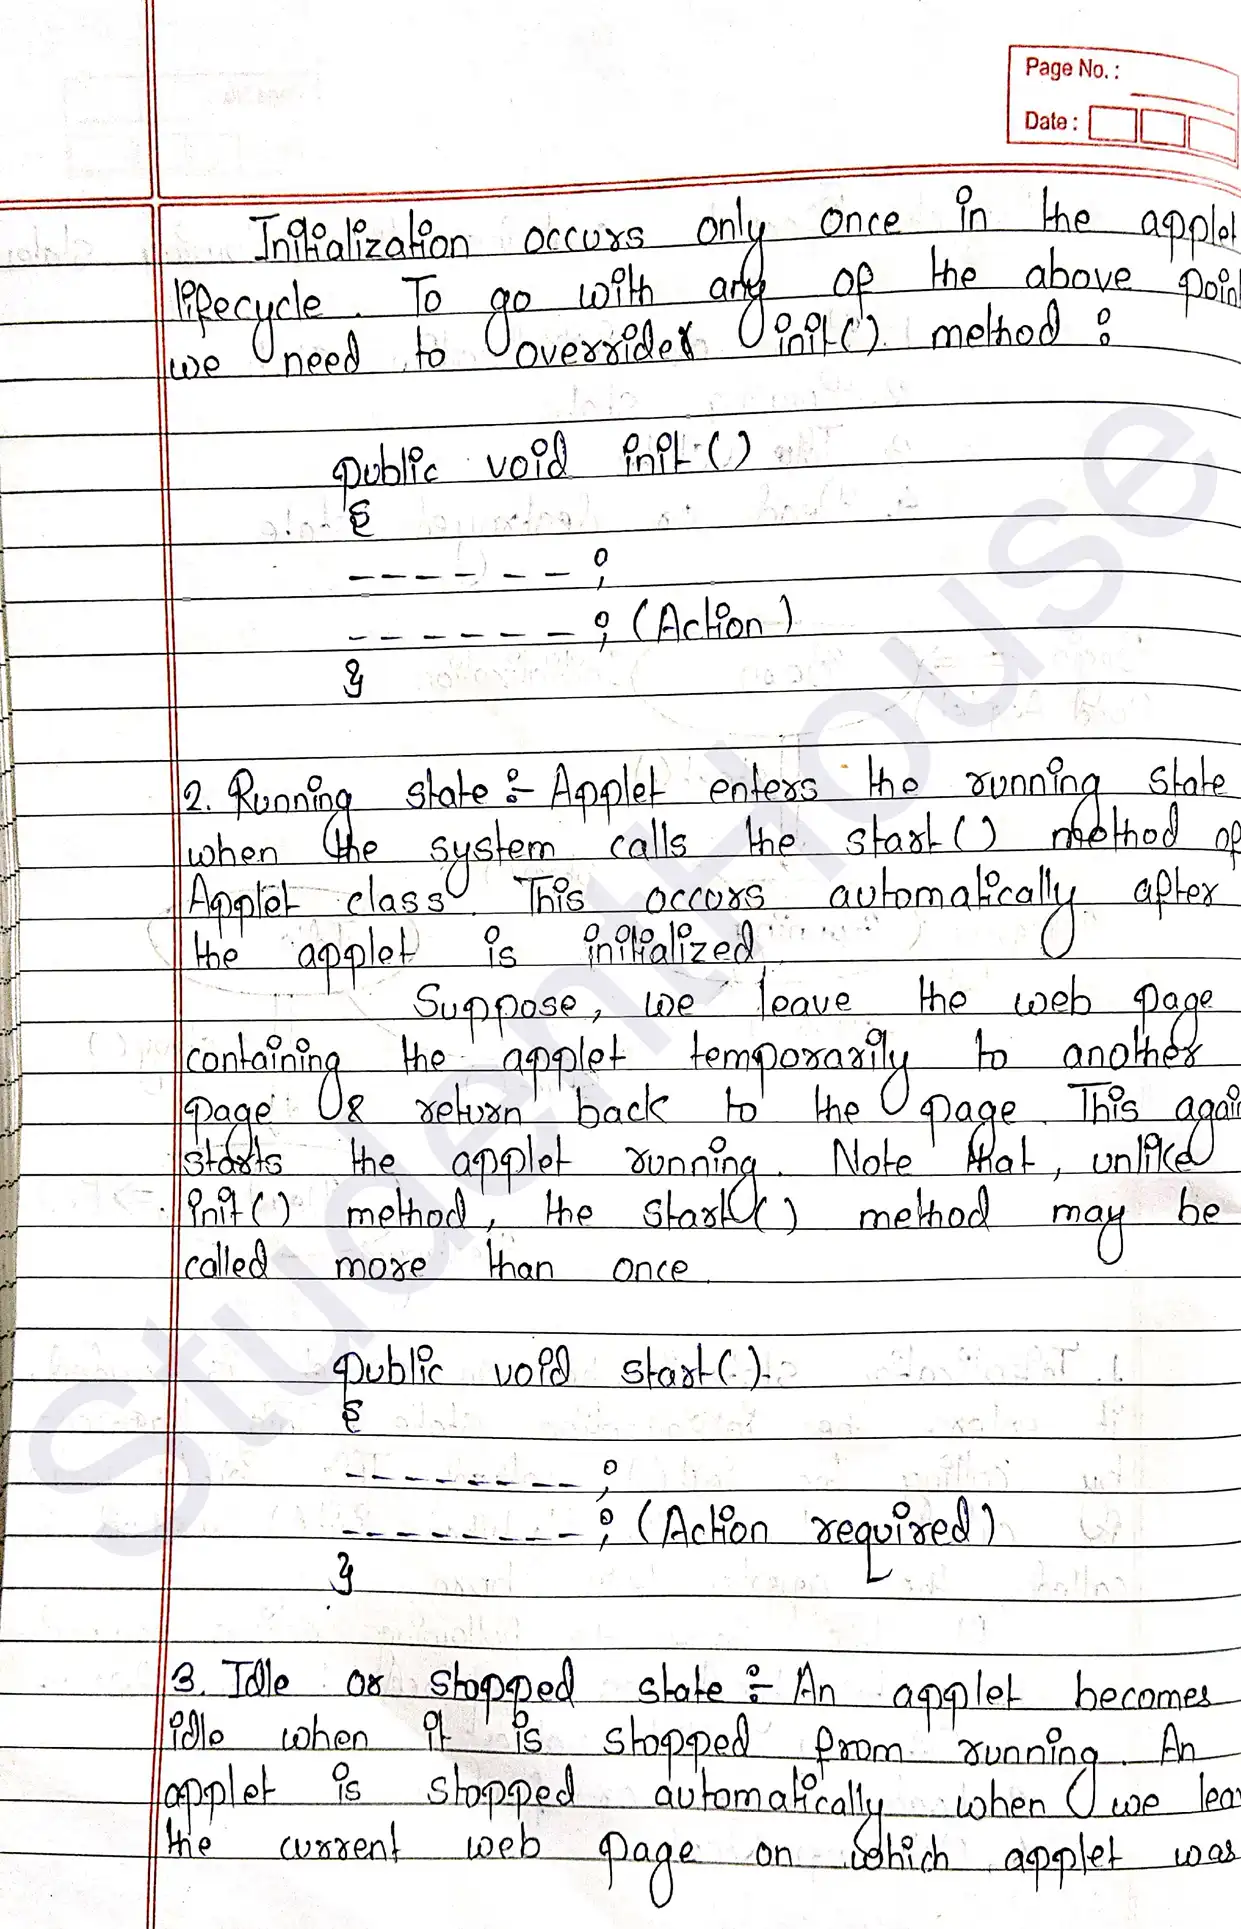 Page No. :
Date :
Initialization occurs only once in the applet
lifecycle. To go with any of the above point
we need to overrides init() method :
public void init()
{
------- ;
------- ; (Action)
}
2. Running state :- Applet enters the running state
when the system calls the start() method of
Applet class. This occurs automatically after
the applet is initialized
Suppose, we leave the web page
containing the applet temporarily to another
page & return back to the page. This again
starts the applet running. Note that, unlike
init() method, the start() method may be
called more than once.
public void start().
{
--------- ;
--------- ; (Action required)
}
3. Idle or stopped state :- An applet becomes
idle when it is stopped from running. An
applet is stopped automatically when we lea
the current web page on which applet was
StudentHouse